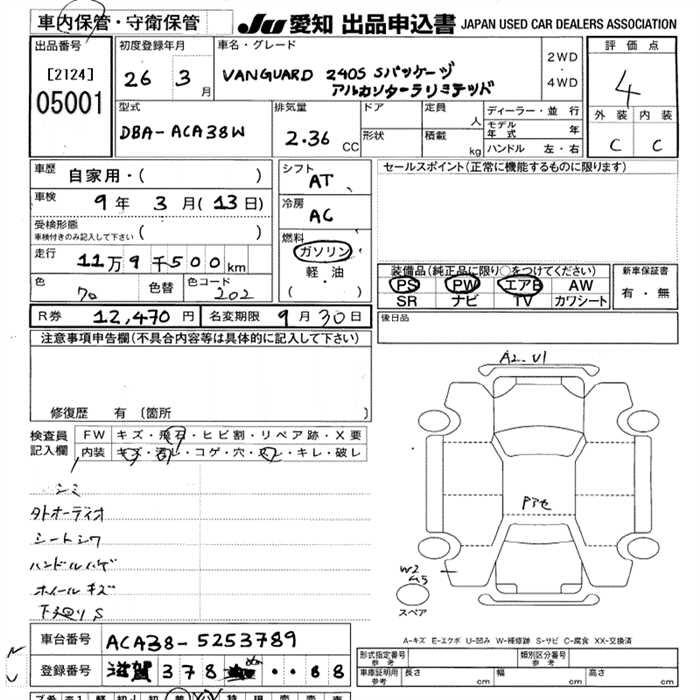 車内保管・守衛保管
JU 愛知 出品申込書 JAPAN USED CAR DEALERS ASSOCIATION
出品番号
[2124]
05001
初度登録年月
26 3 月
車名・グレード
VANGUARD 240S Sパッケージ
アルカンターラリミテッド
2WD
・
4WD
評価点
4
外装 内装
C C
型式
DBA-ACA38W
排気量
2.36 CC
ドア
形状
定員
人
積載
kg
ディーラー・並行
モデル年式 年
ハンドル 左・右
車歴
自家用・( )
車検
9年 3月(13日)
受検形態
車検付きのみ記入して下さい ( )
走行
11万9千500km
色
70
色替
色コード
202
シフト
AT
冷房
AC
燃料
ガソリン
軽・油
( )
セールスポイント(正常に機能するものに限ります)
装備品(純正品に限り○をつけてください)
PS PW エアB AW
SR ナビ TV カワシート
新車保証書
有・無
R券 12,470円 名変期限 9月30日
後日品
注意事項申告欄(不具合内容等は具体的に記入して下さい)
修復歴 有 (箇所 )
検査員記入欄
FW キズ・飛石・ヒビ割・リペア跡・X要
内装 キズ・汚レ・コゲ・穴・スレ・キレ・破レ
シミ
タトオーディオ
シートシワ
ハンドルハゲ
ホイールキズ
下廻りS
A2 U1
Pアセ
W2
スペア
A-キズ E-エクボ U-凹み W-補修跡 S-サビ C-腐食 XX-交換済
車台番号 ACA38-5253789
登録番号 滋賀 378 ・・88
形式指定番号
参考
類別区分番号
参考
車庫証明用
参考
長さ cm 幅 cm 高さ cm